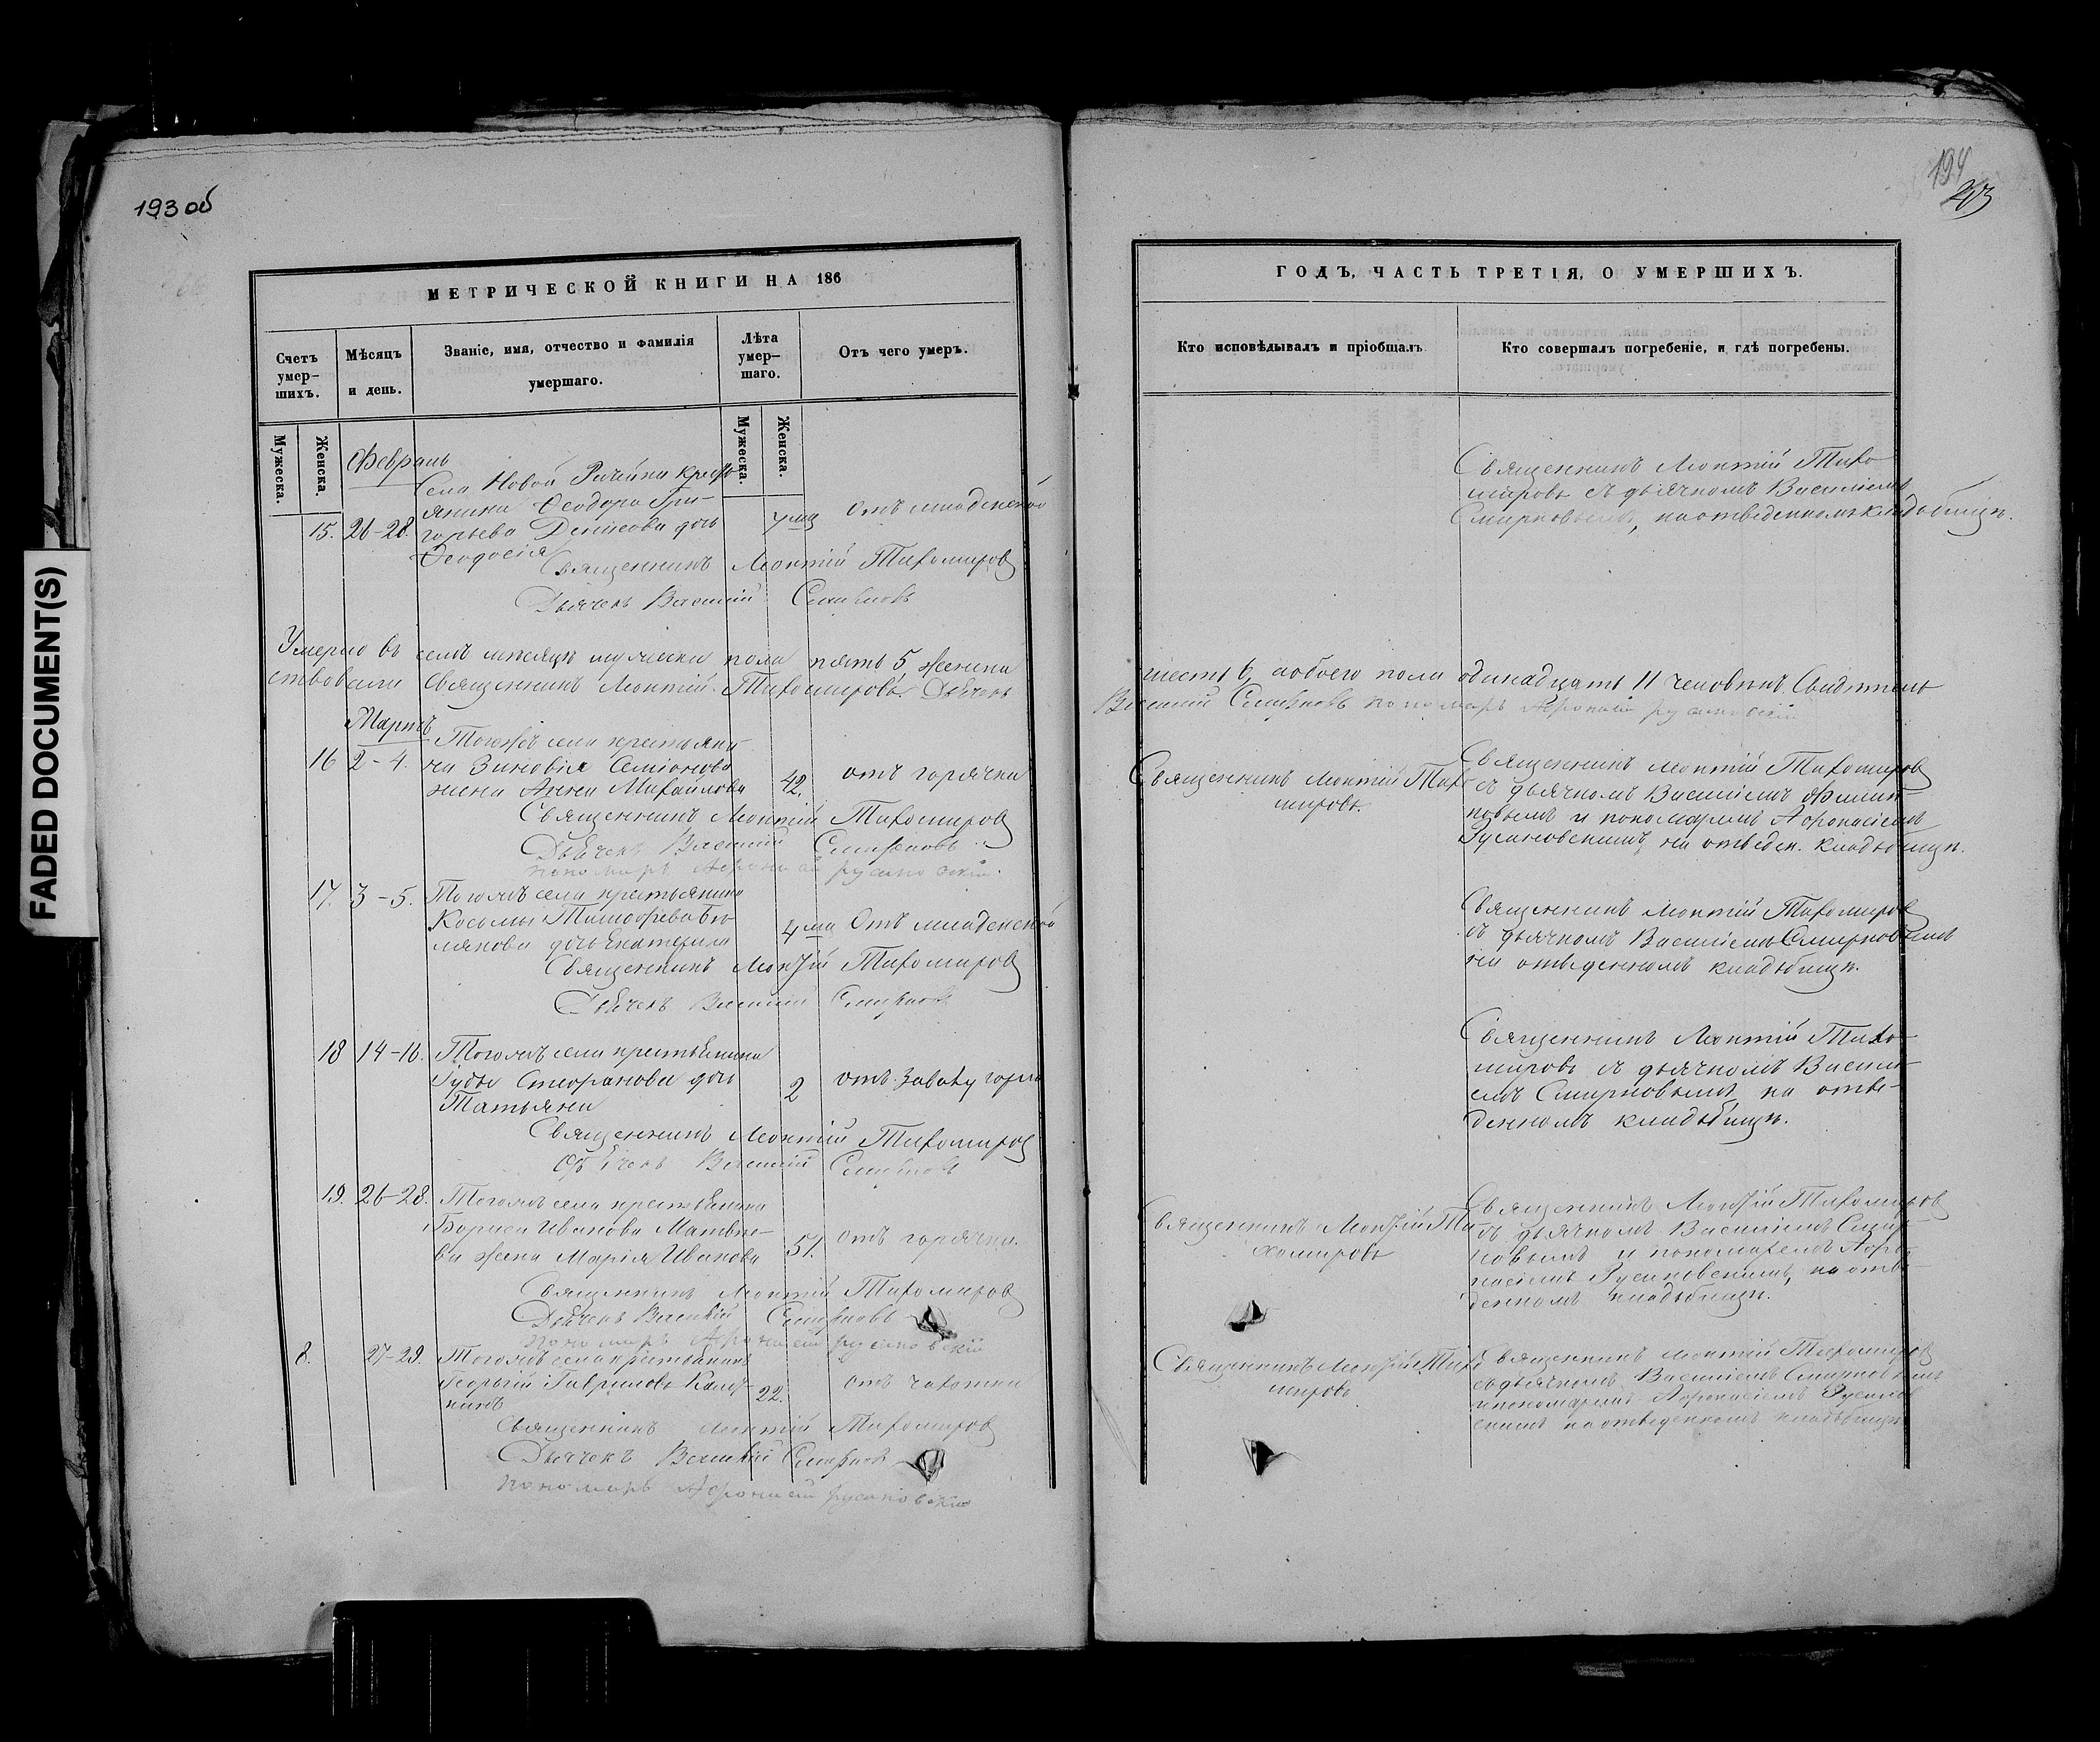 193 об
194
203
FADED DOCUMENT(S)
МЕТРИЧЕСКОЙ КНИГИ НА 186
Счетъ умер-шихъ.
Мѣсяцъ и день.
Званіе, имя, отчество и фамилія умершаго.
Лѣта умер-шаго.
Отъ чего умеръ.
Мужеска.
Женска.
Мужеска.
Женска.
Февраль
Села Новой крестъ
15. 26-28. янина Ѳеодора Гри-
горьева Денисова дочь
Ѳеодосія
Отъ младенской
Священникъ Леонтій Тихомировъ
Дьячекъ Василій Смирновъ
Умерло въ семъ мѣсяцѣ мужеска пола пять 5 женска
ствовали Священникъ Леонтій Тихомировъ. Дьячекъ
Мартъ
Тогожъ села крестьяни
16 2-4. на Зиновія Семіонова
жена Анна Михайлова 42. отъ горячки
Священникъ Леонтій Тихомировъ
Дьячекъ Василій Смирновъ
пономарь
17. 3-5. Тогожъ села крестьянина
Косьмы Тимофѣева
дочь Екатерина 4 Отъ младенской
Священникъ Леонтій Тихомировъ
Дьячекъ Василій Смирновъ
18 14-16. Тогожъ села крестьянина
Стефанова дочь 2 отъ горла
Татьяна
Священникъ Леонтій Тихомировъ
Дьячекъ Василій Смирновъ
19. 26-28. Тогожъ села крестьянина
Бориса Иванова Матвѣе-
ва жена Марія Иванова 51. отъ горячки.
Священникъ Леонтій Тихомировъ
Дьячекъ Василій Смирновъ
пономарь
8. 27-29. Тогожъ села крестьянинъ
Георгій Гавриловъ 22. отъ чахотки
Священникъ Леонтій Тихомировъ
Дьячекъ Василій Смирновъ
пономарь
ГОДЪ, ЧАСТЬ ТРЕТІЯ, О УМЕРШИХЪ.
Кто исповѣдывалъ и пріобщалъ
Кто совершалъ погребеніе, и гдѣ погребены.
Священникъ Леонтій Тихо
мировъ съ дьячкомъ Василіемъ
Смирновымъ, на отведенномъ кладбищѣ.
шесть 6, а обоего пола одинадцать 11 человѣкъ. Свидѣтель
Василій Смирновъ пономарь
Священникъ Леонтій Тихо
мировъ.
Священникъ Леонтій Тихомировъ
съ дьячкомъ Василіемъ
новымъ и пономаремъ
на отведен. кладбищѣ.
Священникъ Леонтій Тихомировъ
съ дьячкомъ Василіемъ Смирновымъ
на отведенномъ кладбищѣ.
Священникъ Леонтій Тихо-
мировъ съ дьячкомъ Васи
емъ Смирновымъ на отве-
денномъ кладбищѣ.
Священникъ Леонтій Ти
хомировъ
Священникъ Леонтій Тихомировъ
съ дьячкомъ Василіемъ Смир-
новымъ и пономаремъ
на отве-
денномъ кладбищѣ.
Священникъ Леонтій Тихо
мировъ
Священникъ Леонтій Тихомировъ
съ дьячкомъ Василіемъ Смирновымъ
и пономаремъ
на отведенномъ кладбищѣ